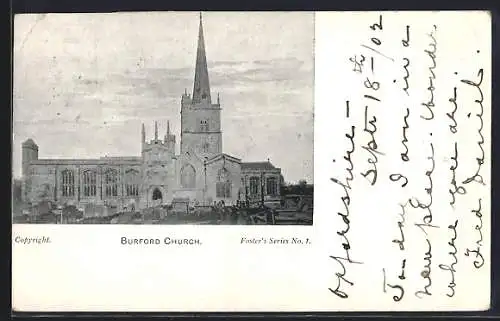 Copyright.
BURFORD CHURCH.
Foster's Series No. 1.
Oxfordshire –
Septr 18th – 02
To-day I am in a
new place. Wonder
where you are.
Fred Daniel.